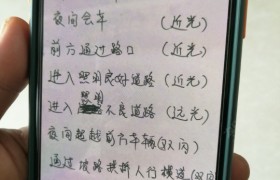 夜间会车 (近光)
前方通过路口 (近光)
进入照明良好道路 (近光)
进入照明不良道路 (远光)
夜间超越前方车辆(双闪)
通过坡路拱桥人行横道(双闪